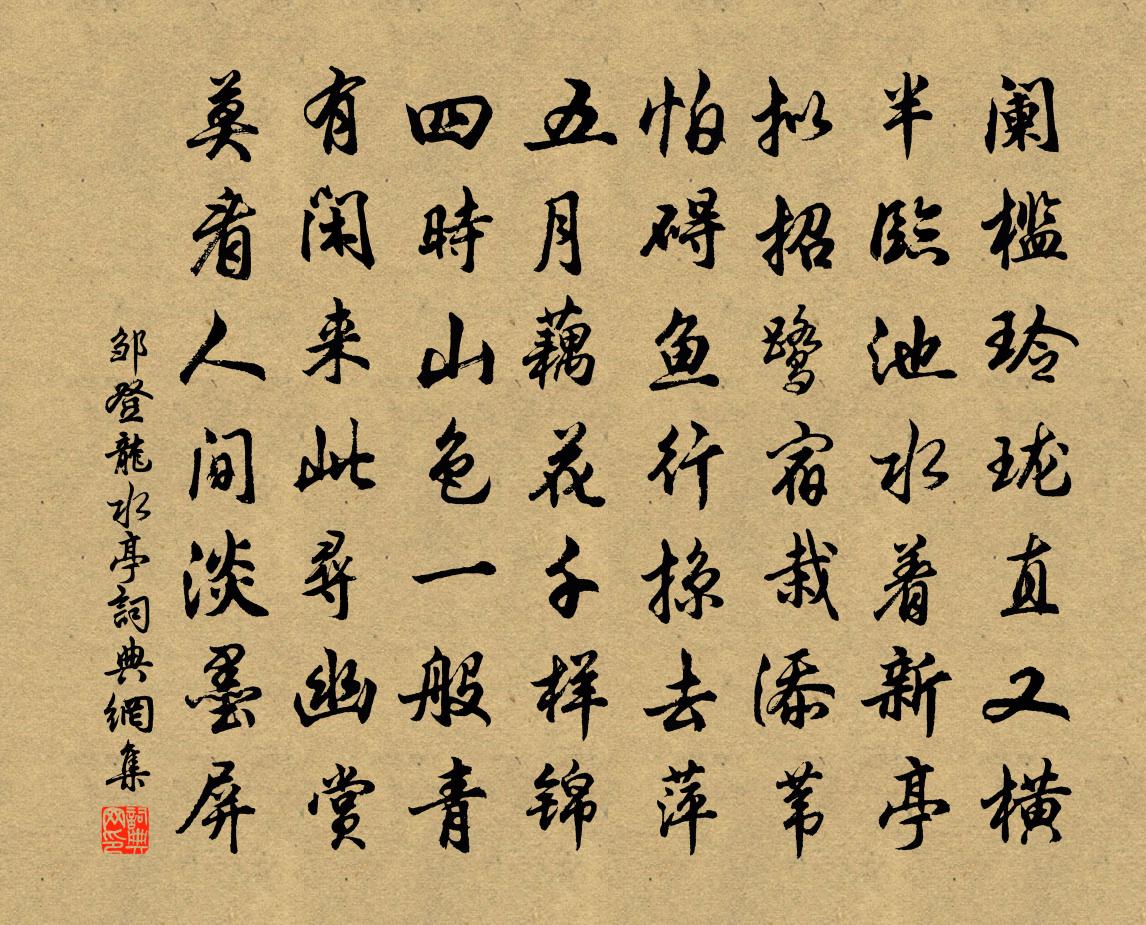 阑槛玲珑直又横
半臨池水着新亭
拟招鹭宿栽添苇
怕碍鱼行掠去萍
五月藕花千样锦
四時山色一般青
有闲来此尋幽赏
莫看人间淡墨屏
邹登龍水亭詞典網集
詞典网印